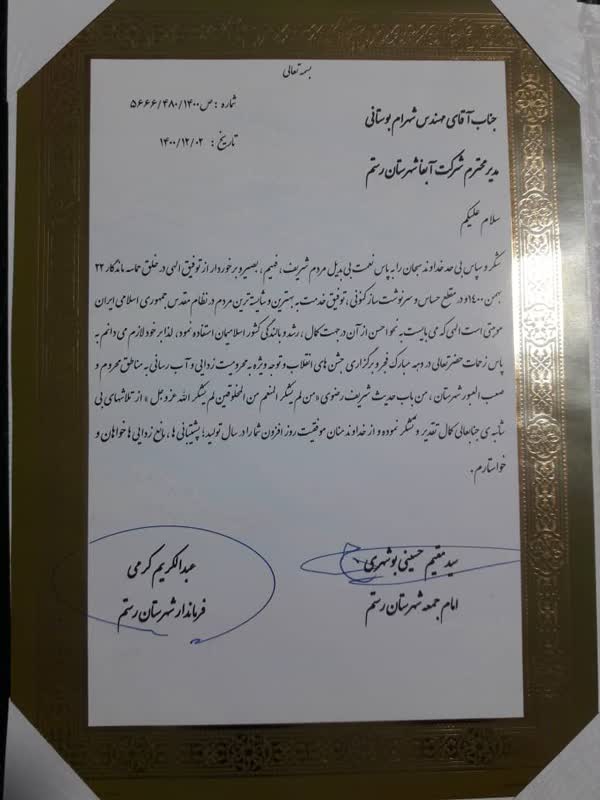 بسمه تعالی
شماره : ص۵۶۶۶/۴۸۰/۱۴۰۰
جناب آقای مهندس شهرام بوستانی
تاریخ : ۱۴۰۰/۱۲/۰۲
مدیر محترم شرکت آبفا شهرستان رستم
سلام علیکم
شکر و سپاس بی حد خداوند سبحان را به پاس نعمت بی بدیل مردم شریف، فهیم، بصیر و برخوردار از توفیق الهی در خلق حماسه ماندگار ۲۲
بهمن ۱۴۰۰ و در مقطع حساس و سرنوشت ساز کنونی، توفیق خدمت به بهترین و شایسته ترین مردم در نظام مقدس جمهوری اسلامی ایران
موهبتی است الهی که می بایست به نحو احسن از آن در جهت کمال، رشد و بالندگی کشور اسلامیمان استفاده نمود، لذا بر خود لازم می دانم به
پاس زحمات حضرتعالی در دهه مبارک فجر و برگزاری جشن های انقلاب و توجه ویژه به محرومیت زدایی و آب رسانی به مناطق محروم و
صعب العبور شهرستان، من باب حدیث شریف رضوی «من لم یشکر المنعم من المخلوقین لم یشکر الله عز و جل» از تلاشهای بی
شائبه ی جنابعالی کمال تقدیر و تشکر نموده و از خداوند منان موفقیت روز افزون شما را در سال تولید؛ پشتیبانی ها، مانع زدایی ها خواهان و
خواستارم.
سید مقیم حسینی بوشهری
عبدالکریم کرمی
امام جمعه شهرستان رستم
فرماندار شهرستان رستم